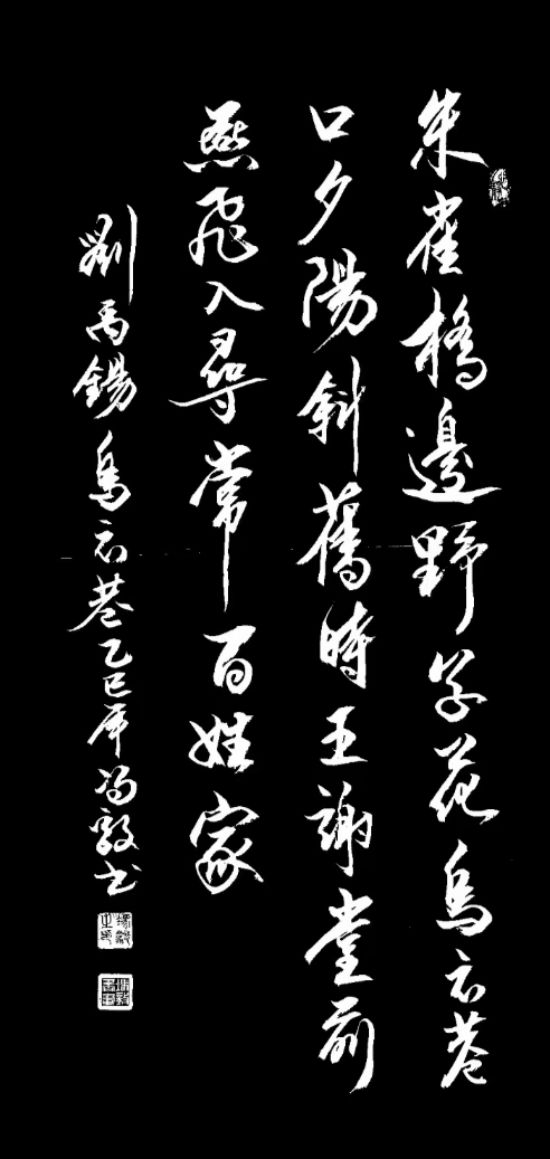 朱雀橋邊野草花烏衣巷
口夕陽斜舊時王謝堂前
燕飛入尋常百姓家
劉禹錫烏衣巷乙巳年冯书